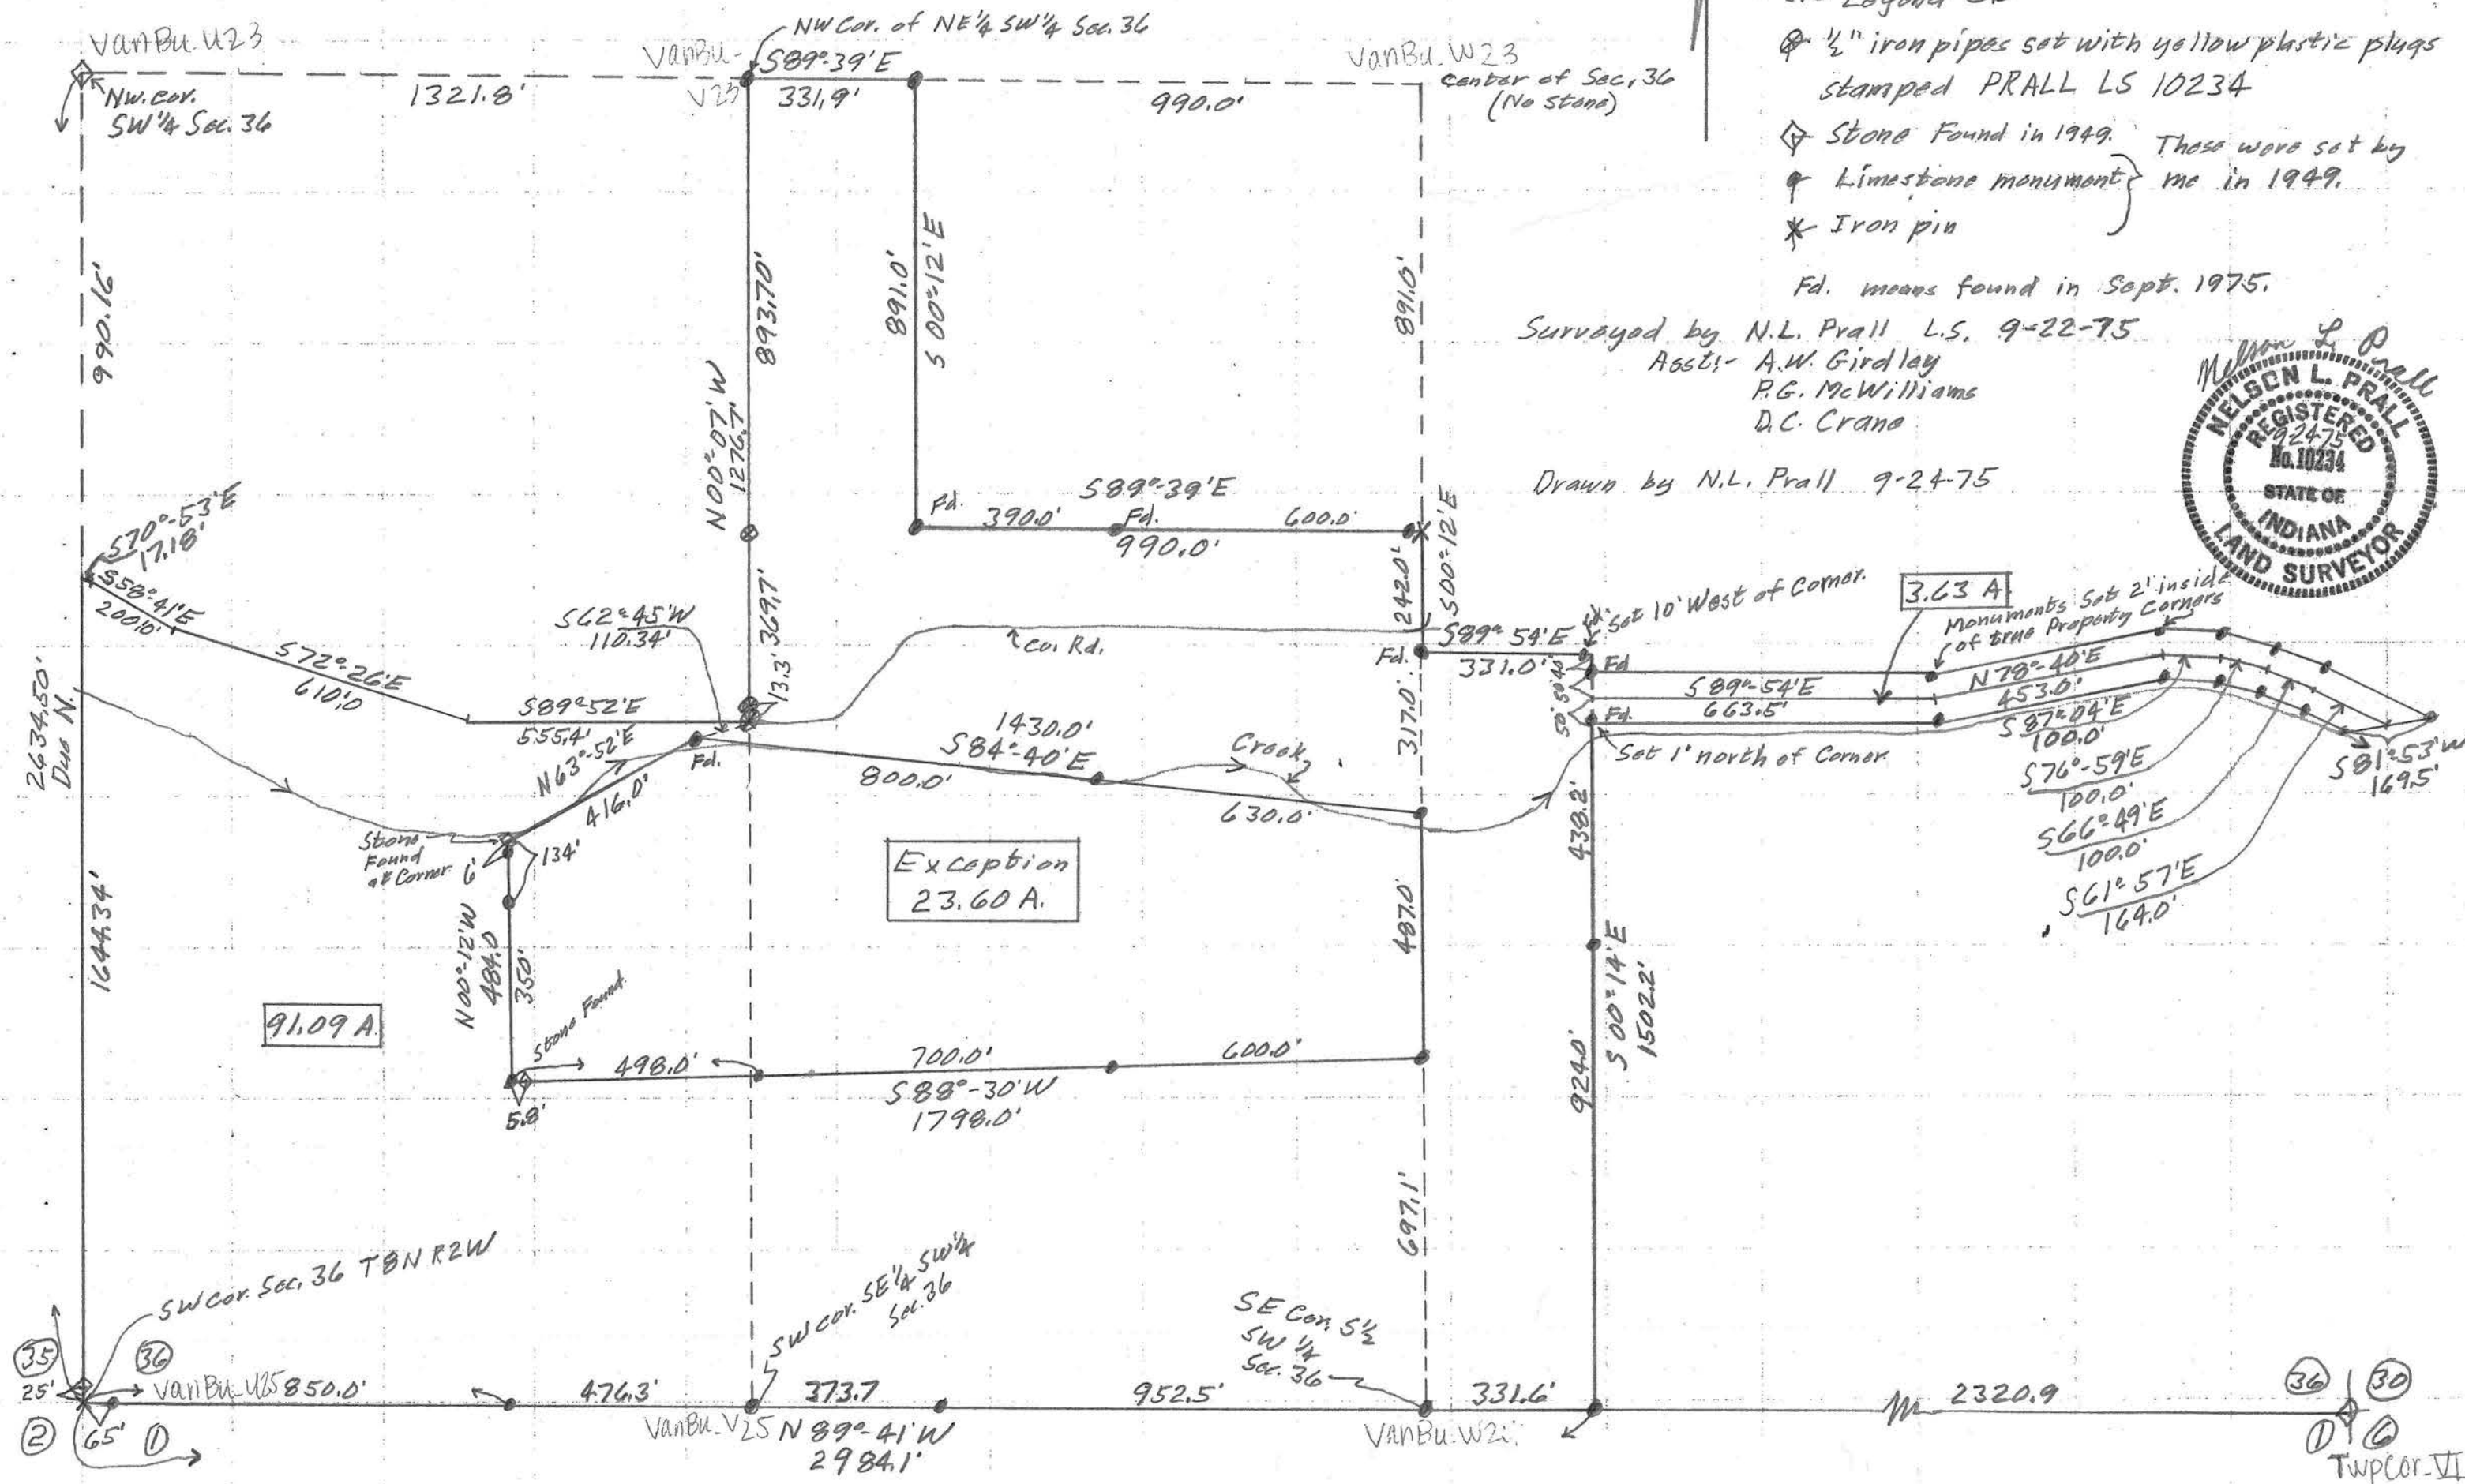 VanBu-U23
NW. Cor.
SW 1/4 Sec. 36
1321.8'
VanBu-
V23
NW Cor. of NE 1/4 SW 1/4 Sec. 36
S89°-39'E
331.9'
990.0'
VanBu-W23
Center of Sec. 36
(No Stone)
1/2" iron pipes set with yellow plastic plugs
stamped PRALL LS 10234
Stone Found in 1949.
Limestone monument
Iron pin
These were set by
me in 1949.
Fd. means found in Sept. 1975.
Surveyed by N.L. Prall L.S. 9-22-75
Asst:- A.W. Girdley
P.G. McWilliams
D.C. Crane
Drawn by N.L. Prall 9-24-75
Nelson L. Prall
NELSON L. PRALL
REGISTERED
9-24-75
No. 10234
STATE OF
INDIANA
LAND SURVEYOR
990.16'
893.70'
N00°-07'W
1276.7'
891.0'
S00°-12'E
891.0'
Fd.
S89°-39'E
390.0'
Fd.
600.0'
990.0'
S70°-53'E
17.18'
S58°-41'E
200.0'
S72°-26'E
610.0
S89°52'E
555.4'
S62°-45'W
110.34'
369.7'
13.3'
Co. Rd.
242.0'
S00°-12'E
Fd.
S89°-54'E
331.0'
Set 10' West of Corner.
40'
50'
50'
50'
Fd
Fd.
S89°-54'E
663.5'
Set 1' north of Corner
3.63 A
Monuments Set 2' inside
of true Property Corners
N78°-40'E
453.0'
S87°-04'E
100.0'
S76°-59'E
100.0'
S66°-49'E
100.0'
S61°-57'E
164.0'
S81°-53'W
169.5'
2634.50'
Due N.
1644.34'
N63°-52'E
416.0'
Fd.
1430.0'
S84°-40'E
800.0'
630.0'
Creek
317.0'
438.2'
Stone
Found
at Corner
6'
134'
Exception
23.60 A.
487.0'
N00°-12'W
484.0
350'
91.09 A.
Stone Found.
498.0'
700.0'
600.0'
S88°-30'W
1798.0'
5.8'
924.0'
S00°-14'E
1502.2'
697.1'
SW cor. Sec. 36 T8N R2W
SW cor. SE 1/4 SW 1/4
Sec. 36
SE Cor. S 1/2
SW 1/4
Sec. 36
35
36
25'
VanBu-U25
850.0'
476.3'
373.7
952.5'
331.6'
2320.9
36
30
2
65'
1
VanBu-V25
N89°-41'W
2984.1'
1
6
TwpCor-VI